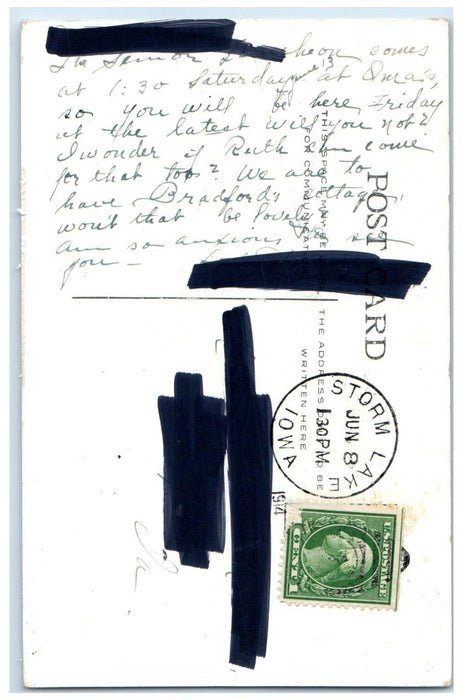 The Senior Luncheon comes
at 1:30 Saturday June 13 at Oma's,
so you will be here Friday
at the latest will you not?
I wonder if Ruth can come
for that too? We are to
have Bradford's cottage,
won't that be lovely?
am so anxious to see
you —
POST CARD
THIS SPACE MAY BE
FOR COMMUNICATION
THE ADDRESS TO BE
WRITTEN HERE
STORM LAKE
JUN 8
130PM
IOWA
1914
Ia
U.S. POSTAGE
1 CENT 1